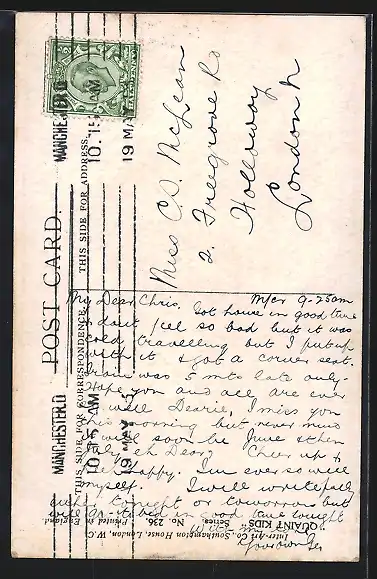 POST CARD.
THIS SIDE FOR CORRESPONDENCE.
THIS SIDE FOR ADDRESS.
MANCHESTER
10.15 AM
19 MA
MANCHESTER
10.15 AM
19 MAY
Miss C.D. McLean
2. Freegrove Rd
Holloway
London N
M/cr 9-25am
My Dear Chris. Got home in good time
& dont feel so bad but it was
cold travelling but I put up
with it & got a corner seat.
Train was 5 mts late only.
Hope you and all are ever
so well Dearie, I miss you
this morning but never mind
it will soon be June & then
July eh Dear? Cheer up &
be happy. I'm ever so well
myself. I will write fully
either tonight or tomorrow but
in good time tonight
With my
Your own
Inter-Art Co., Southampton House, London, W.C.
"QUAINT KIDS" Series.
No. 236. Printed in England.